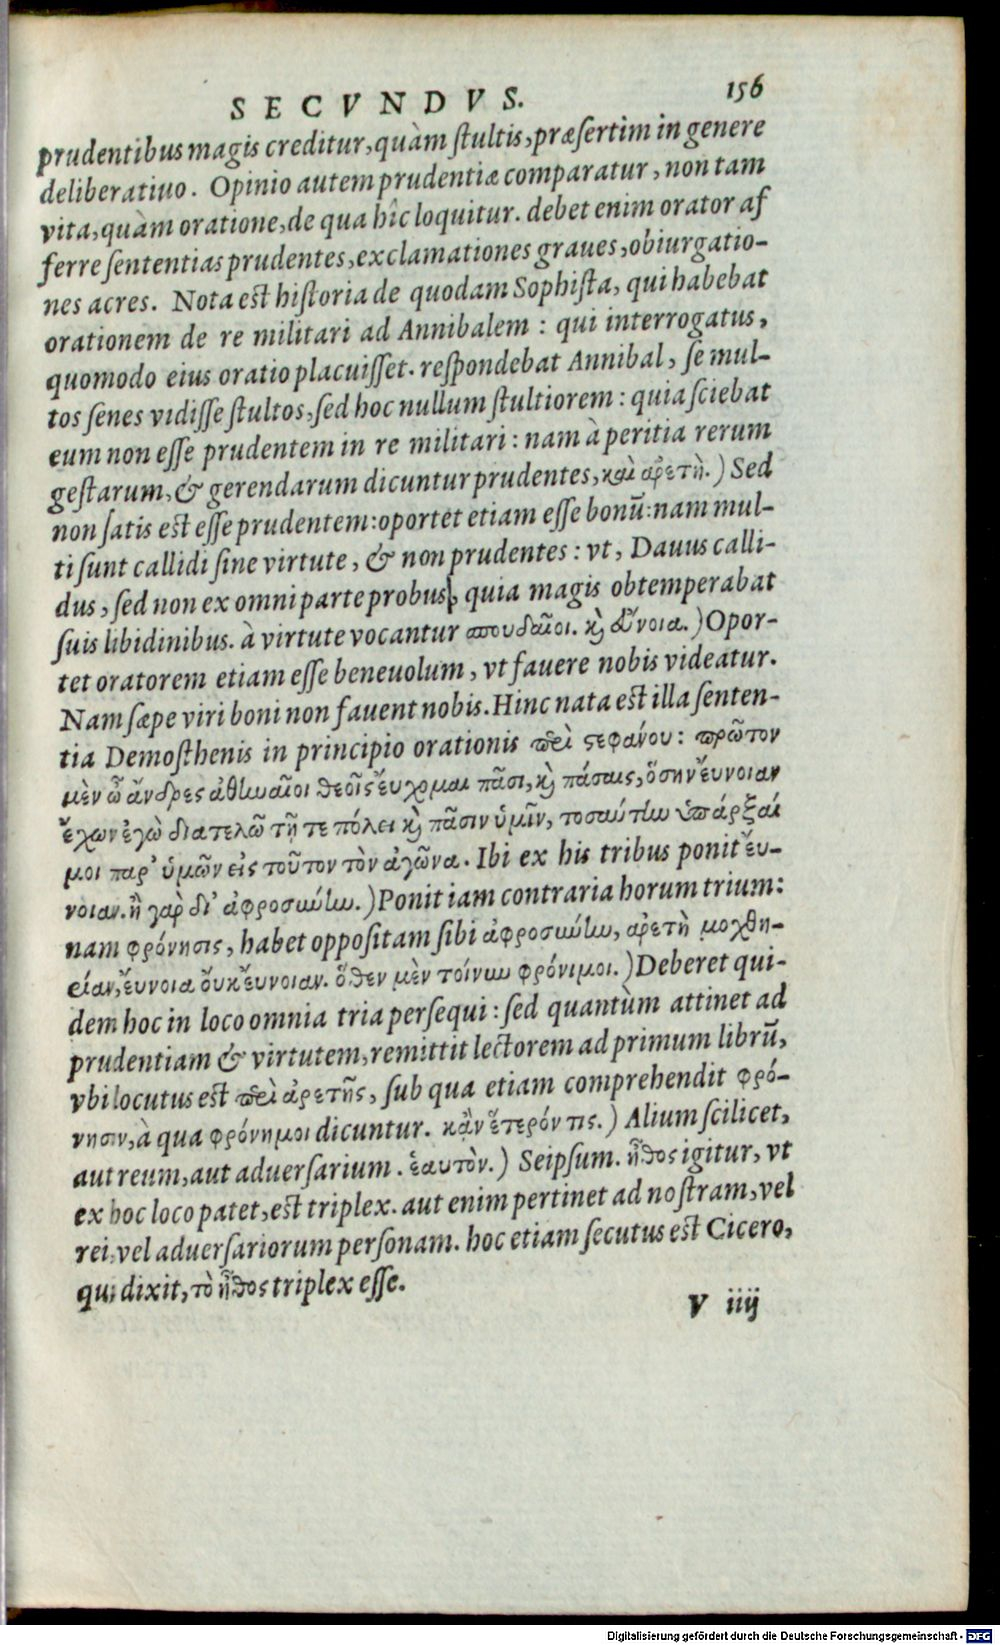 SECVNDVS.
156
prudentibus magis creditur, quàm ſtultis, præſertim in genere
deliberatiuo. Opinio autem prudentiæ comparatur, non tam
vita, quàm oratione, de qua hîc loquitur. debet enim orator af
ferre ſententias prudentes, exclamationes graues, obiurgatio-
nes acres. Nota eſt hiſtoria de quodam Sophiſta, qui habebat
orationem de re militari ad Annibalem : qui interrogatus,
quomodo eius oratio placuiſſet. reſpondebat Annibal, ſe mul-
tos ſenes vidiſſe ſtultos, ſed hoc nullum ſtultiorem : quia ſciebat
eum non eſſe prudentem in re militari : nam à peritia rerum
geſtarum, & gerendarum dicuntur prudentes, καὶ ἀρετὴ.) Sed
non ſatis eſt eſſe prudentem: oportet etiam eſſe bonū: nam mul-
ti ſunt callidi ſine virtute, & non prudentes : vt, Dauus calli-
dus, ſed non ex omni parte probus, quia magis obtemperabat
ſuis libidinibus. à virtute vocantur σπουδαῖοι. καὶ εὔνοια.) Opor-
tet oratorem etiam eſſe beneuolum, vt fauere nobis videatur.
Nam ſæpe viri boni non fauent nobis. Hinc nata eſt illa ſenten-
tia Demoſthenis in principio orationis περὶ στεφάνου: πρῶτον
μὲν ὦ ἄνδρες ἀθηναῖοι θεοῖς εὔχομαι πᾶσι, καὶ πάσαις, ὅσην εὔνοιαν
ἔχων ἐγὼ διατελῶ τῇ τε πόλει καὶ πᾶσιν ὑμῖν, τοσαύτην ὑπάρξαί
μοι παρ' ὑμῶν εἰς τοῦτον τὸν ἀγῶνα. Ibi ex his tribus ponit εὔ-
νοιαν. ἢ γὰρ δι' ἀφροσύνην.) Ponit iam contraria horum trium:
nam φρόνησις, habet oppoſitam ſibi ἀφροσύνην, ἀρετὴ μοχθη-
είαν, εὔνοια οὔκ εὔνοιαν. ὅθεν μὲν τοίνυν φρόνιμοι.) Deberet qui-
dem hoc in loco omnia tria perſequi : ſed quantùm attinet ad
prudentiam & virtutem, remittit lectorem ad primum librū,
vbi locutus eſt περὶ ἀρετῆς, ſub qua etiam comprehendit φρό-
νησιν, à qua φρόνημοι dicuntur. κᾂν ἕτερόν τις.) Alium ſcilicet,
aut reum, aut aduerſarium. ἑαυτὸν.) Seipſum. ἦθος igitur, vt
ex hoc loco patet, eſt triplex. aut enim pertinet ad noſtram, vel
rei, vel aduerſariorum perſonam. hoc etiam ſecutus eſt Cicero,
qui dixit, τὸ ἦθος triplex eſſe.
V iiij
Digitalisierung gefördert durch die Deutsche Forschungsgemeinschaft - DFG